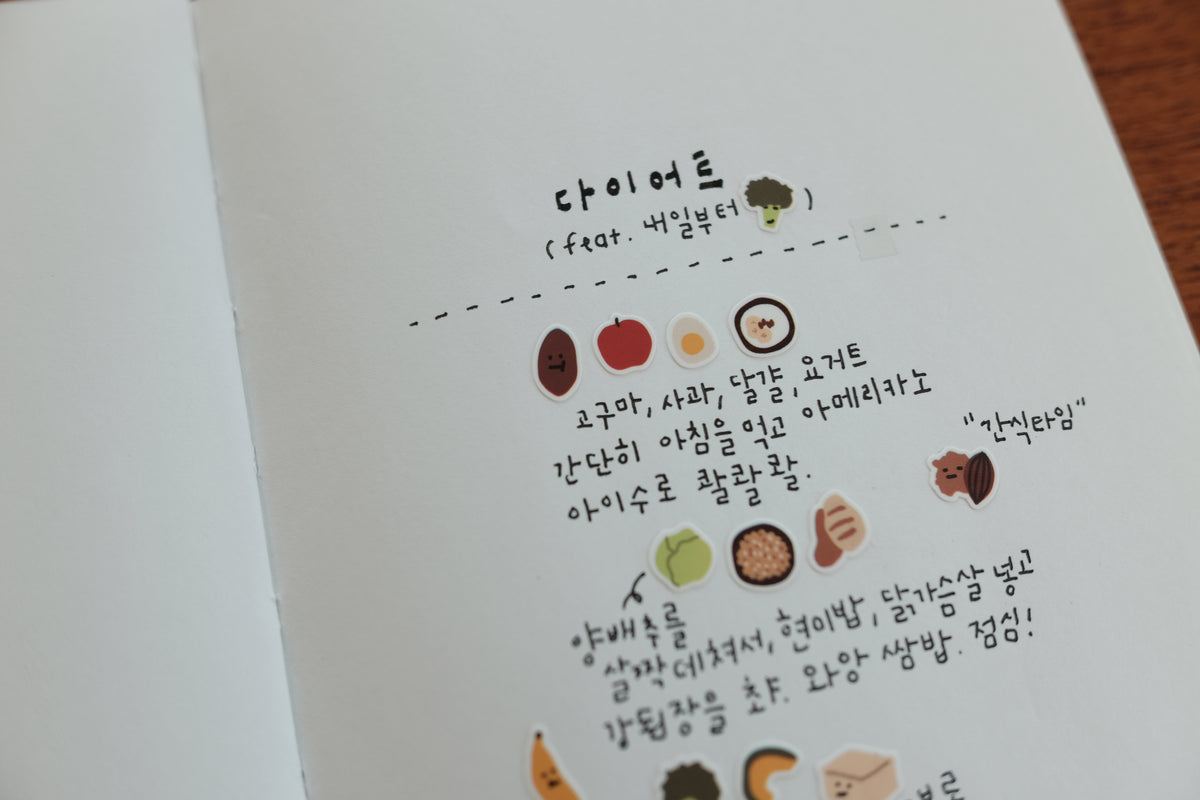 다이어트
(feat. 내일부터 )
고구마, 사과, 달걀, 요거트
간단히 아침을 먹고 아메리카노
아이수로 콸콸콸.
"간식타임"
양배추를
살짝 데쳐서, 현미밥, 닭가슴살 넣고
강된장을 촤. 와앙 쌈밥. 점심!